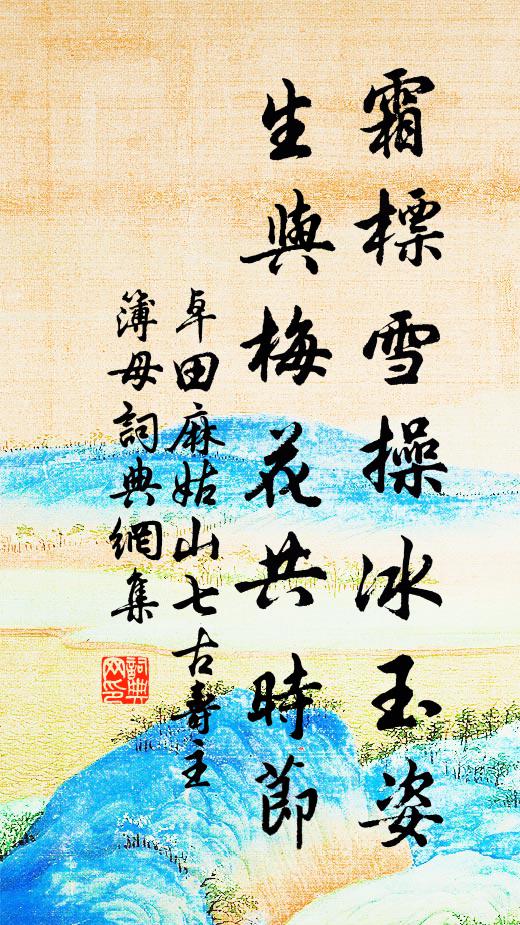 霜標雪操冰玉姿
生與梅花共時節
卓田麻姑山七古壽主
簿母詞典網集
詞典網印